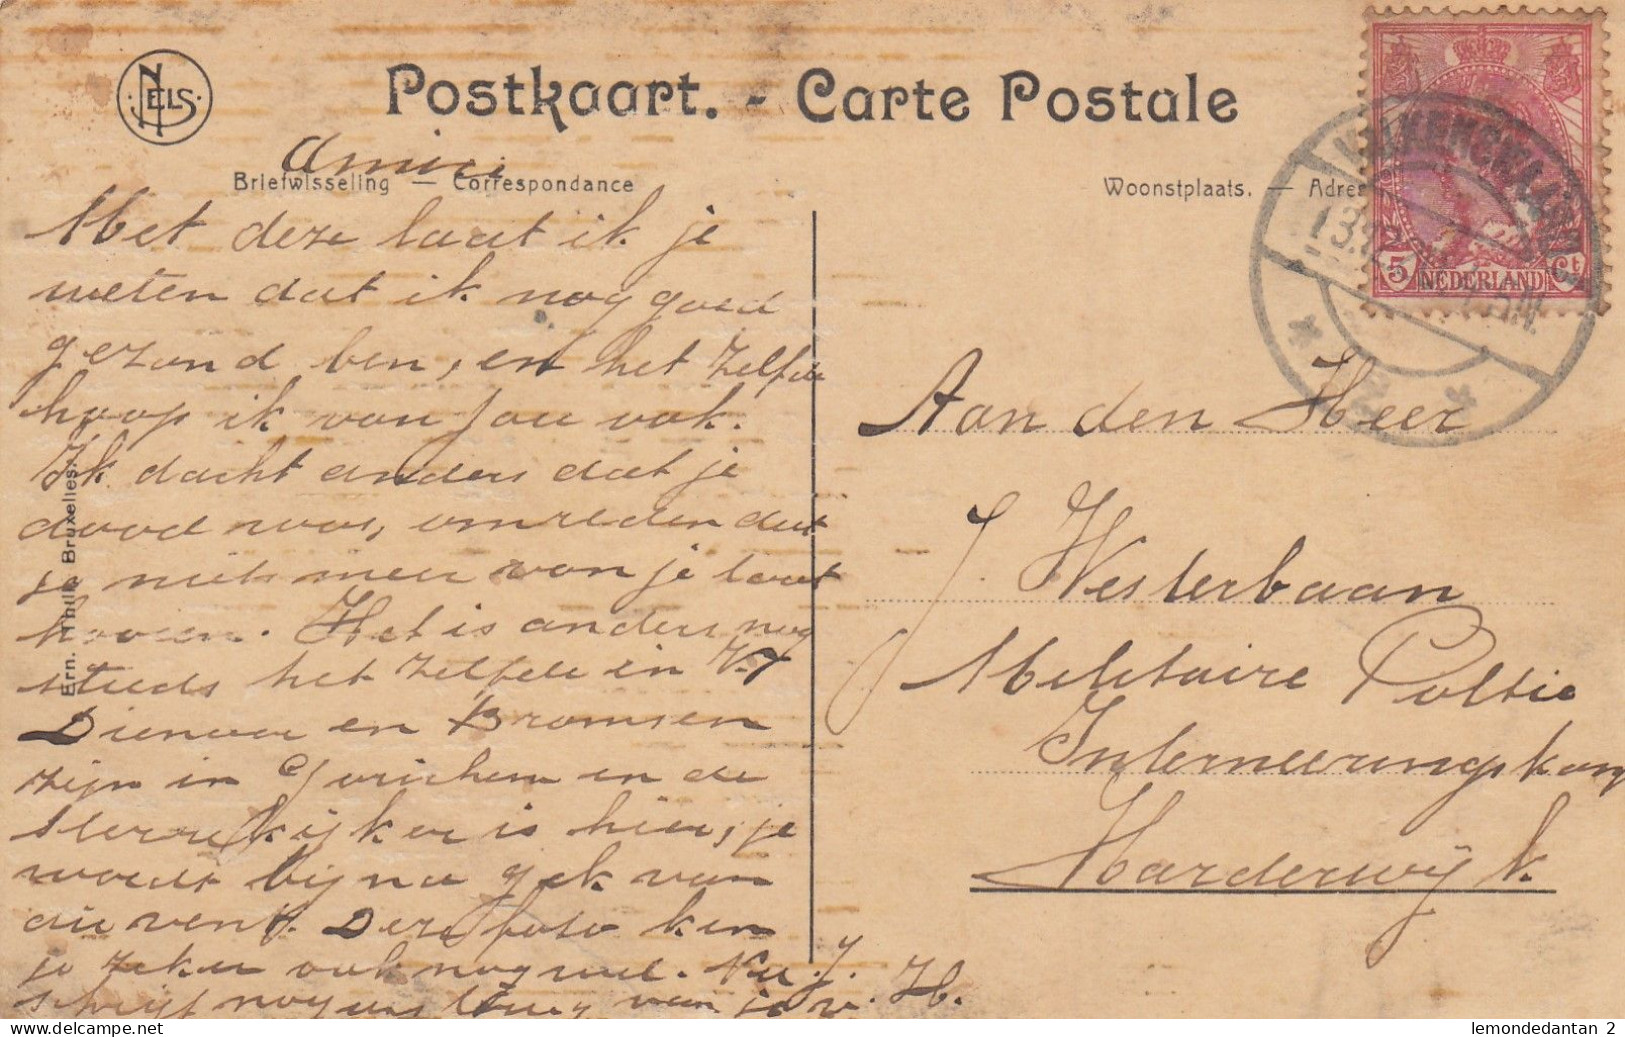 NELS
Postkaart. - Carte Postale
Amice
Briefwisseling — Correspondance
Woonstplaats. — Adres
VALKENSWAARD
13
5 NEDERLAND Ct
Met deze laat ik je
weten dat ik nog goed
gezond ben, en het zelfde
hoop ik van jou ook.
Ik dacht anders dat je
dood was, omreden dat
je niets meer van je laat
hooren. Het is anders nog
steeds het zelfde in V.
en Bromsen
zijn in Gorichem en de
Sterrekijker is hier, je
wordt bijna gek van
die vent. Deze foto ken
je zeker ook nog wel. Nu J.
schrijf nog eens terug van je v. H.
Ern. Thill, Bruxelles.
Aan den Heer
J. Westerbaan
Militaire Politie
Interneeringskamp
Harderwijk
lemondedantan 2